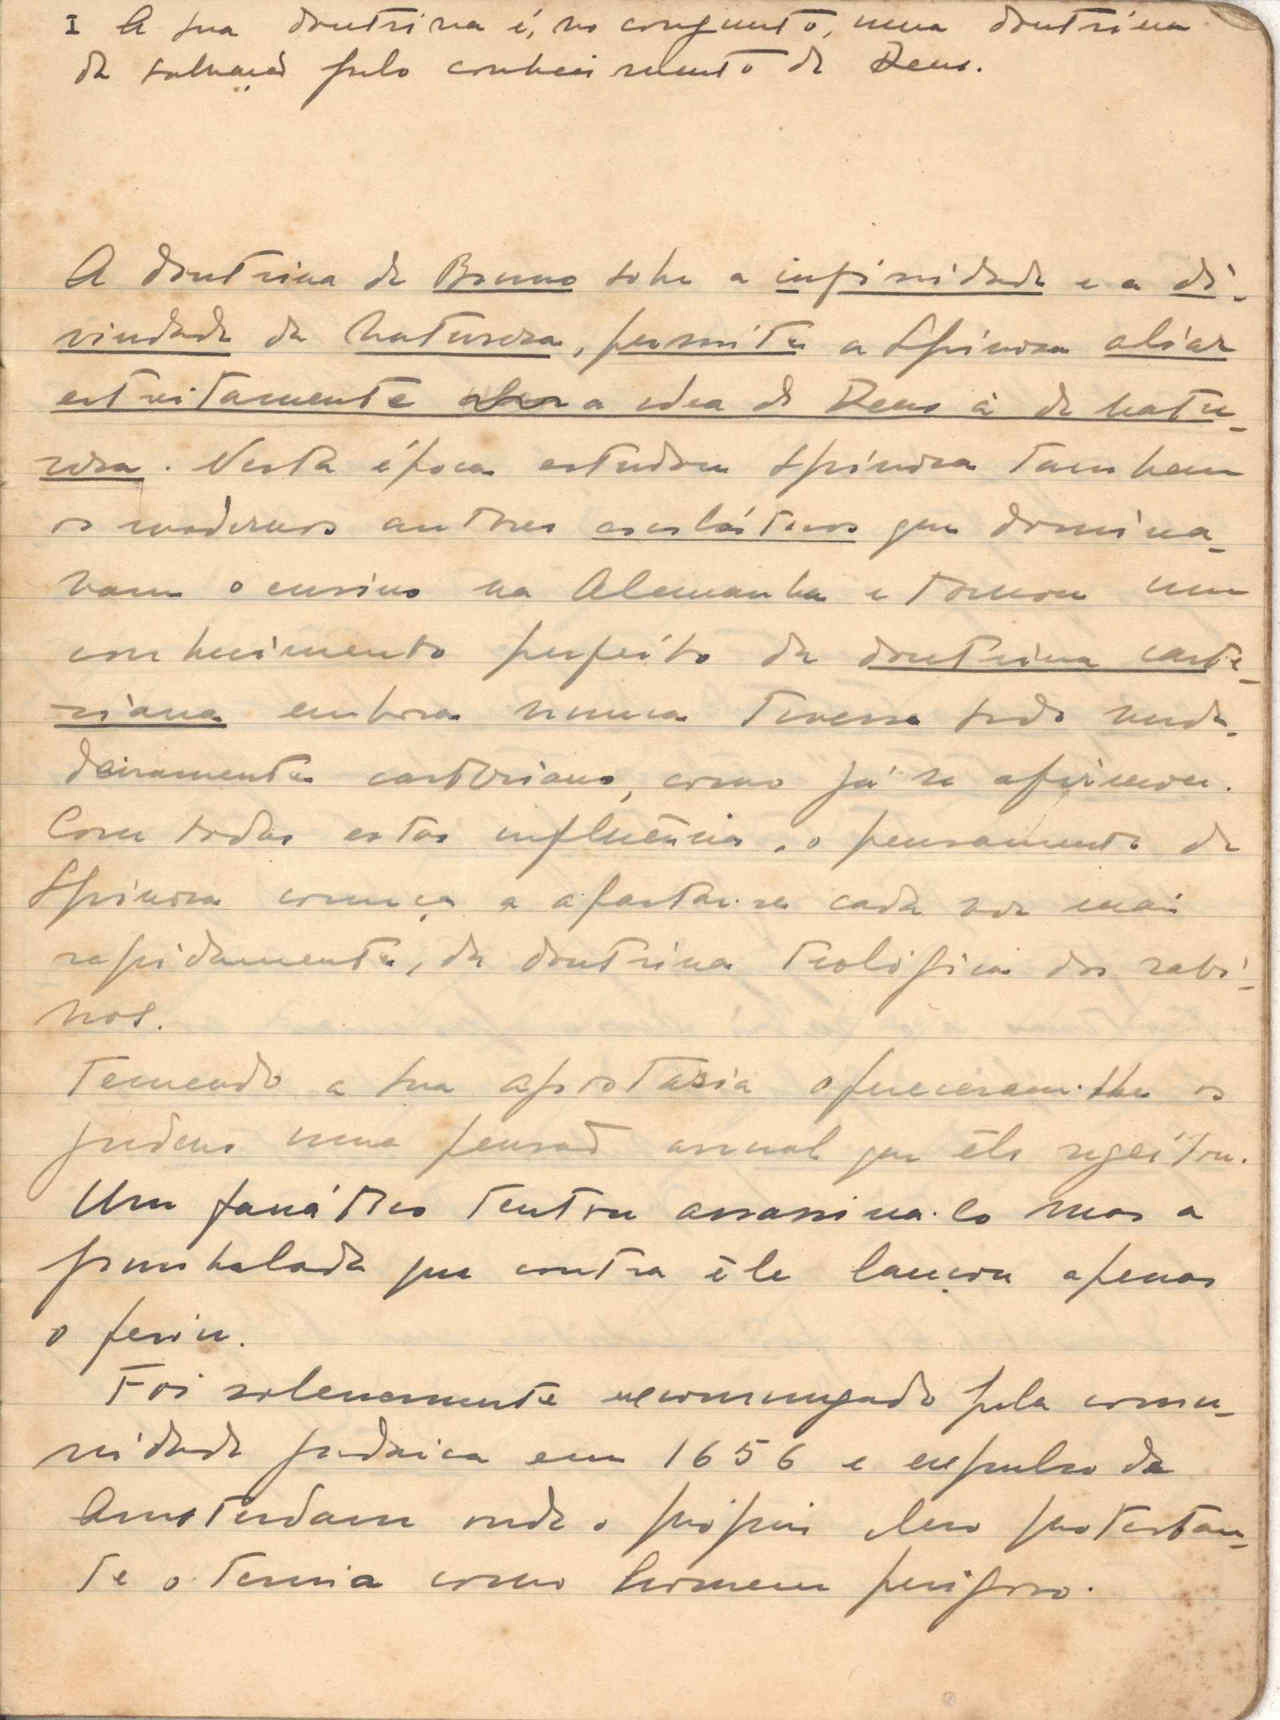 I A sua doutrina é, no conjunto, uma doutrina
da salvação pelo conhecimento de Deus.
A doutrina de Bruno sobre a infinidade e a di-
vindade da Natureza, permite a Spinosa aliar
estreitamente a idea de Deus à de natu-
reza. Nesta época estudou Spinosa tambem
os modernos autores escolásticos que domina-
vam o ensino na Alemanha e tomou um
conhecimento perfeito da doutrina carte-
siana embora nunca tivesse sido verda-
deiramente cartesiano, como já se afirmou.
Com todas estas influências, o pensamento de
Spinosa começa a afastar-se cada vez mais
rapidamente, da doutrina teológica dos rabi-
nos.
Temendo a sua apostasia ofereceram-lhe os
judeus uma pensão anual que êle regeitou.
Um fanático tentou assassina-lo mas a
punhalada que contra êle lançou apenas
o feriu.
Foi solenemente excomungado pela comu-
nidade judaica em 1656 e expulso de
Amsterdam onde o próprio clero protestan-
te o temia como homem perigoso.